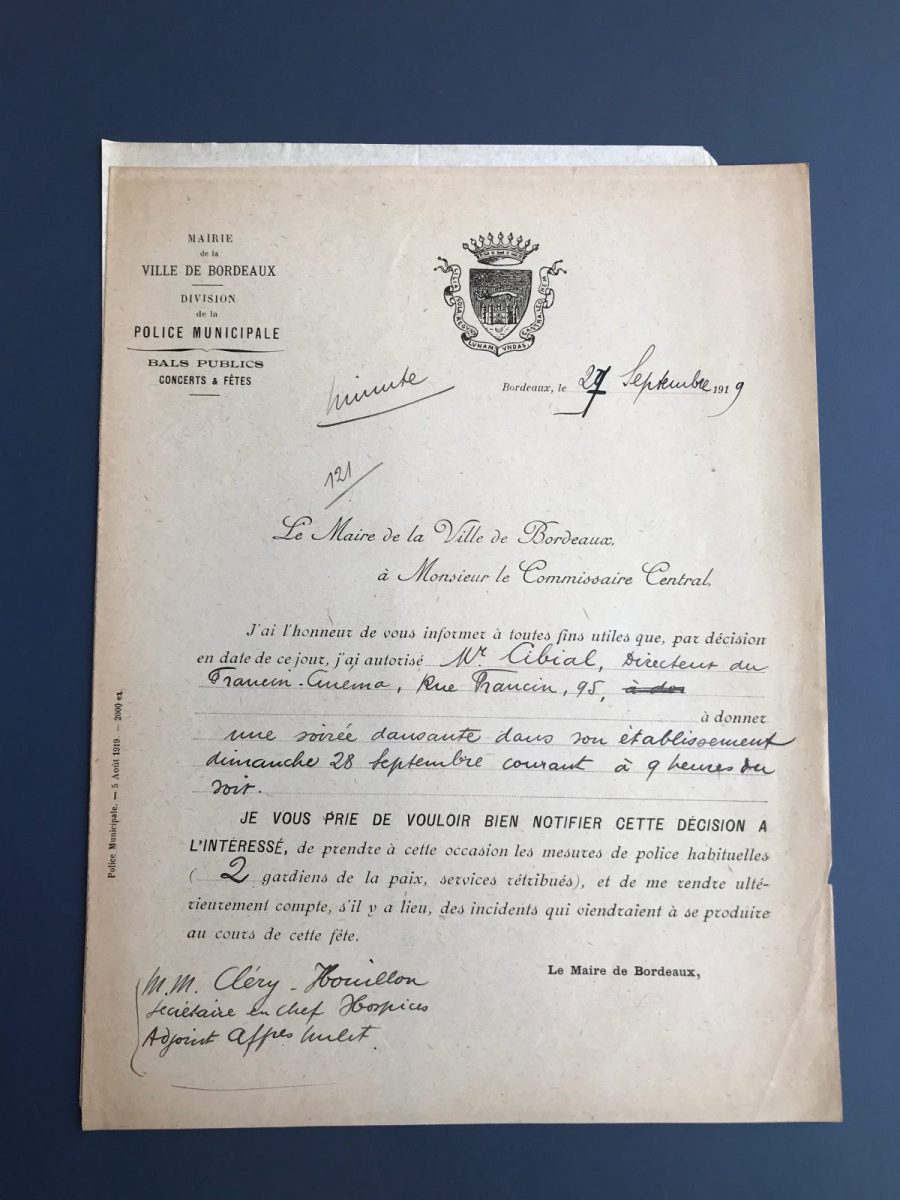 MAIRIE
de la
VILLE DE BORDEAUX
DIVISION
de la
POLICE MUNICIPALE
BALS PUBLICS
CONCERTS & FÊTES
LILIA SOLA REGUNT LUNAM UNDAS CASTRA LEONEM
Bordeaux, le 27 Septembre 1919
minute
121
Le Maire de la Ville de Bordeaux,
à Monsieur le Commissaire Central,
J'ai l'honneur de vous informer à toutes fins utiles que, par décision
en date de ce jour, j'ai autorisé Mr Cibial, Directeur du
Francin-Cinéma, Rue Francin, 95,
à donner
une soirée dansante dans son établissement
dimanche 28 Septembre courant à 9 heures du
soir.
JE VOUS PRIE DE VOULOIR BIEN NOTIFIER CETTE DÉCISION A
L'INTÉRESSÉ, de prendre à cette occasion les mesures de police habituelles
( 2 gardiens de la paix, services rétribués), et de me rendre ulté-
rieurement compte, s'il y a lieu, des incidents qui viendraient à se produire
au cours de cette fête.
Le Maire de Bordeaux,
M.M. Cléry - Houillon
Secrétaire en chef Hospices
Adjoint Affres
Police Municipale. — 5 Août 1919. — 2000 ex.